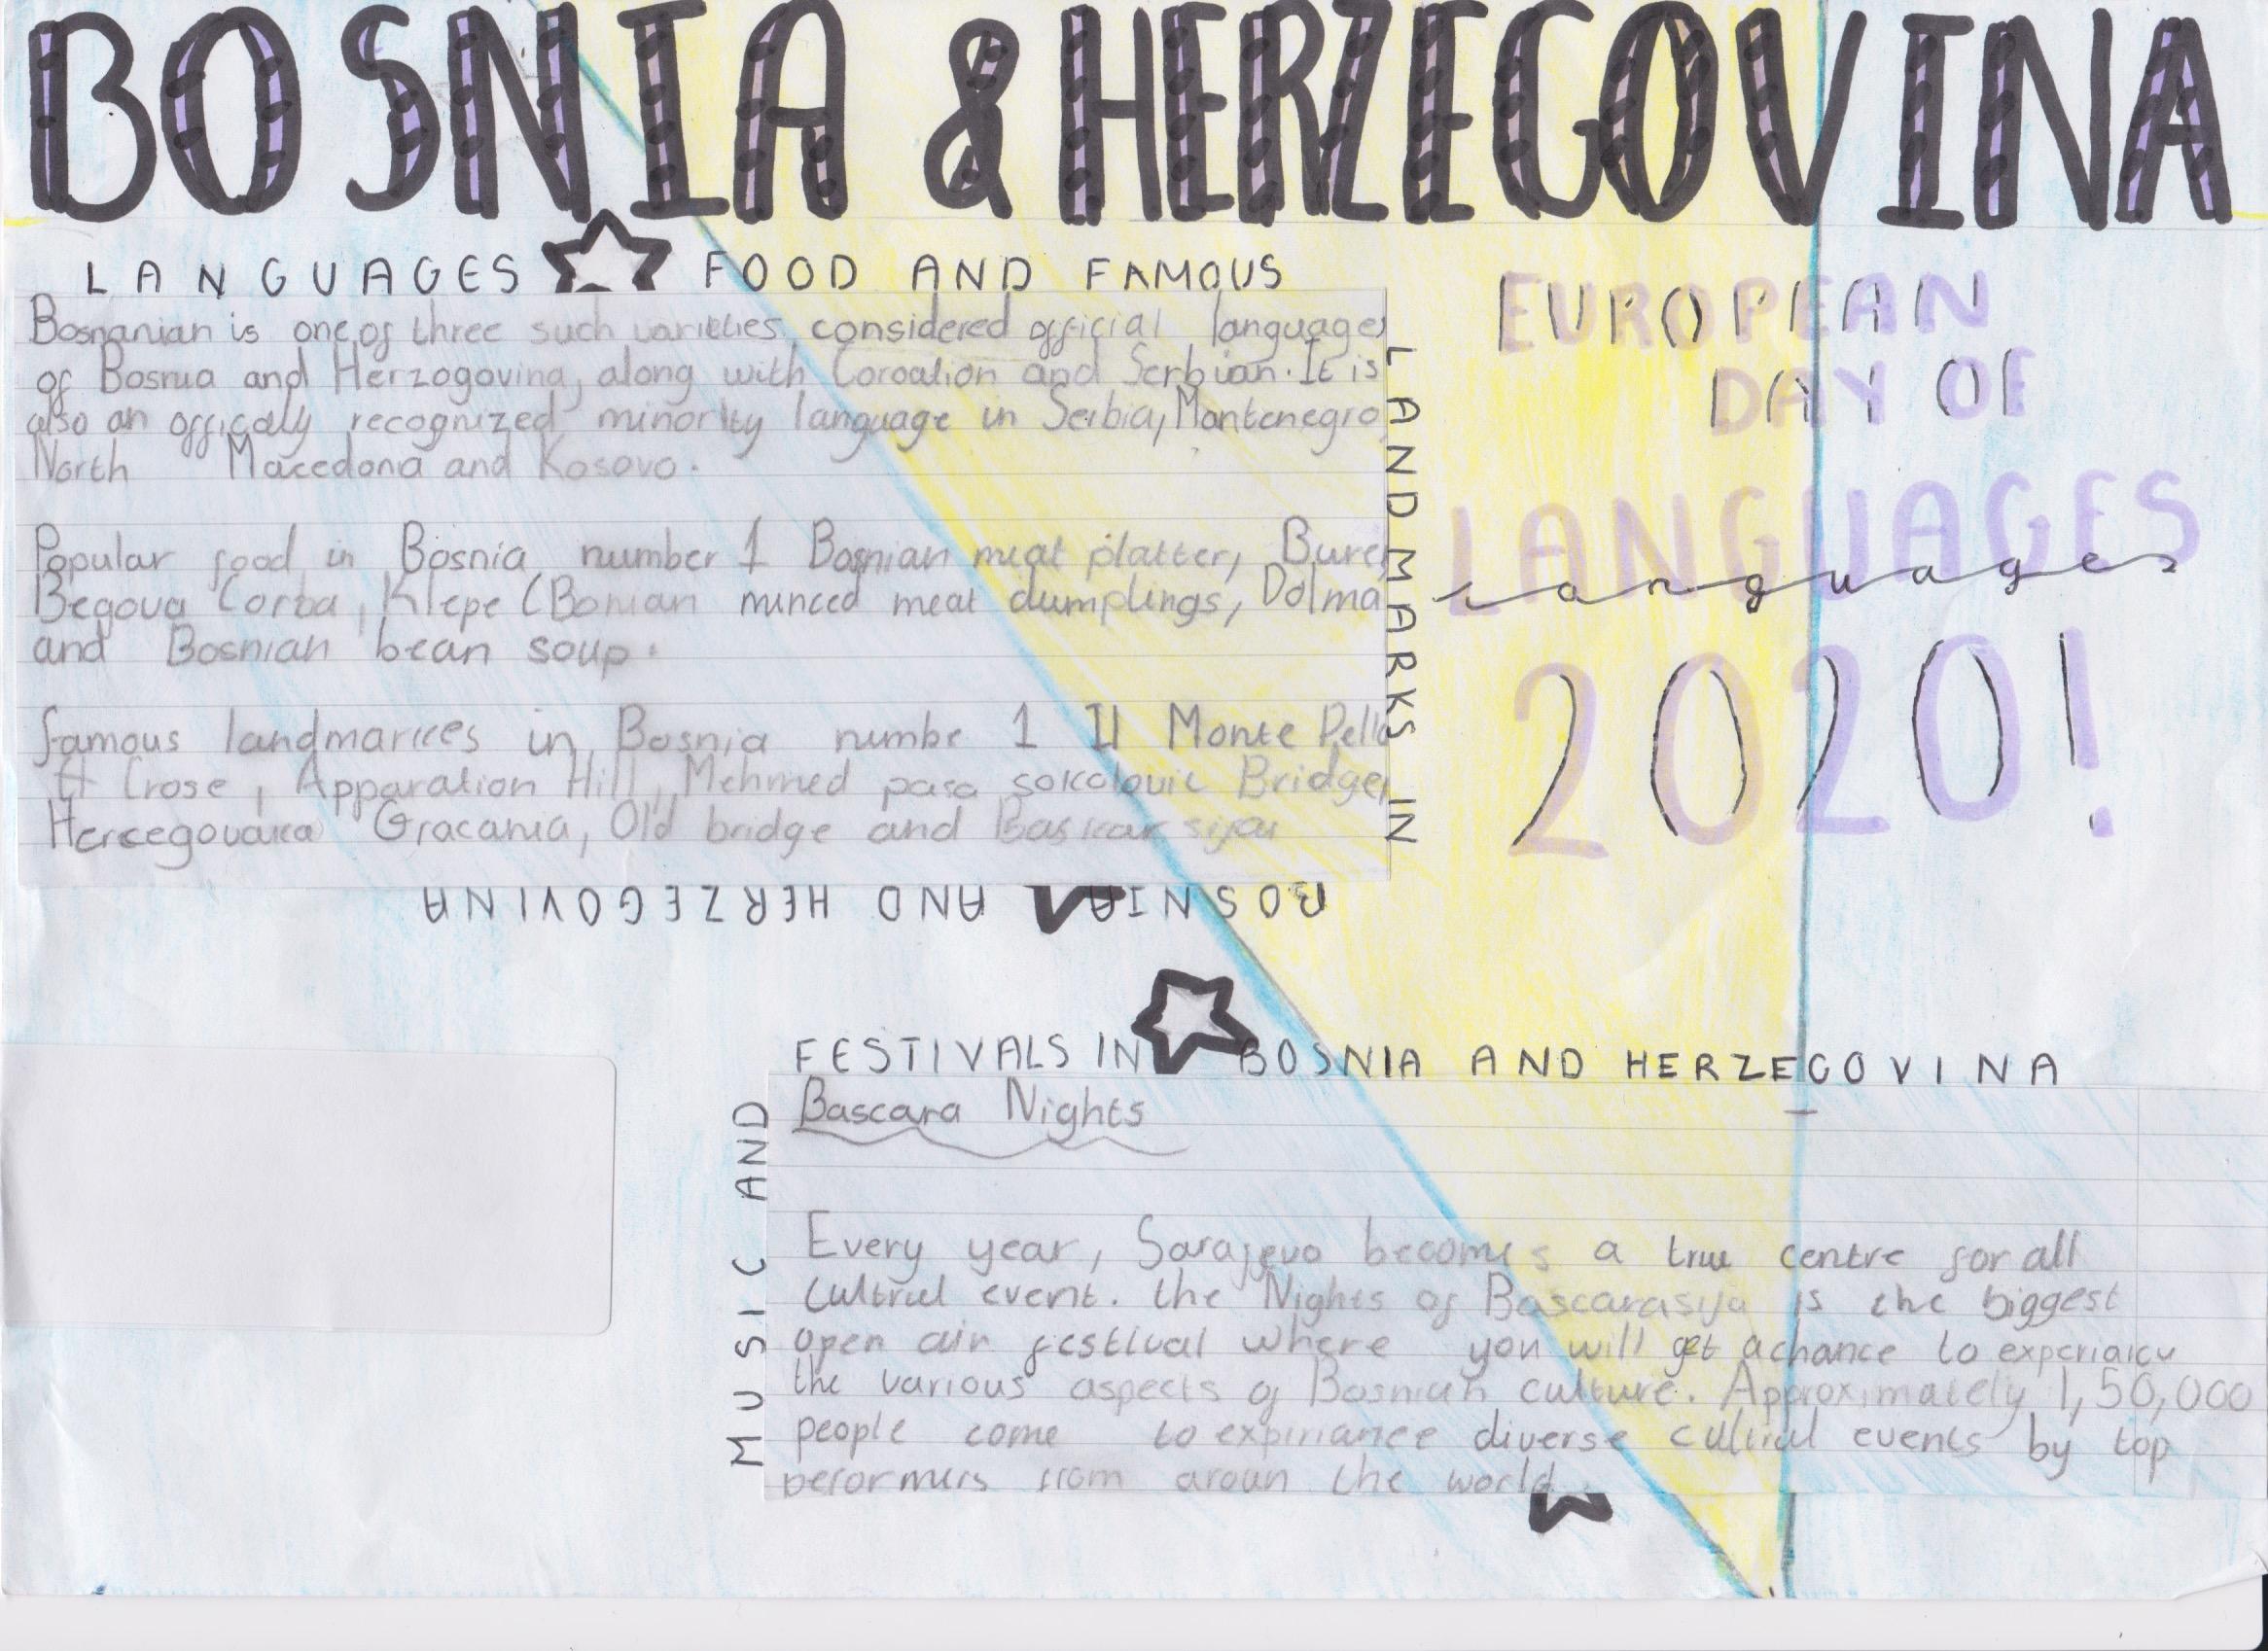 BOSNIA & HERZEGOVINA
LANGUAGES FOOD AND FAMOUS
LANDMARKS IN
BOSNIA AND HERZEGOVINA
Bosnanian is one of three such varieties, considered official languages
of Bosnia and Herzogovina, along with Coroation and Serbian. It is
also an officaly recognized minority language in Serbia, Montenegro,
North Macedona and Kosovo.
Popular food in Bosnia number 1 Bosnian meat platter, Burek,
Begova Corba, Klepe (Bonian minced meat dumplings, Dolma
and Bosnian bean soup.
famous landmarkes in Bosnia numbe 1 Il Monte Pella
Crose, Apparation Hill, Mehmed pasa sokolovic Bridge,
Gracania, Old bridge and
EUROPEAN
DAY OF
LANGUAGES
languages
2020!
MUSIC AND
FESTIVALS IN BOSNIA AND HERZEGOVINA
Bascara Nights
Every year, Sarajevo becomes a true centre for all
cultrul event. the Nights of Bascarasija is the biggest
open air festival where you will get a chance to
the various aspects of Bosnian culture. Approximately 1,50,000
people come to expiriance diverse cultrul events by top
perormers from aroun the world.